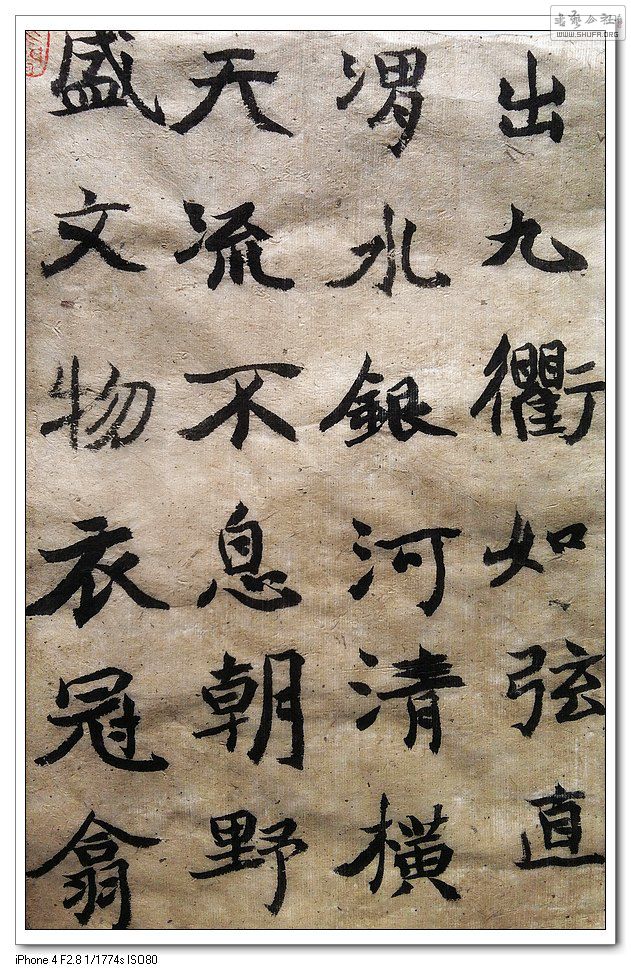 出九衢如弦直
渭水銀河清横
天流不息朝野
盛文物衣冠翕
WWW.SHUFA.ORG
iPhone 4 F2.8 1/1774s ISO80